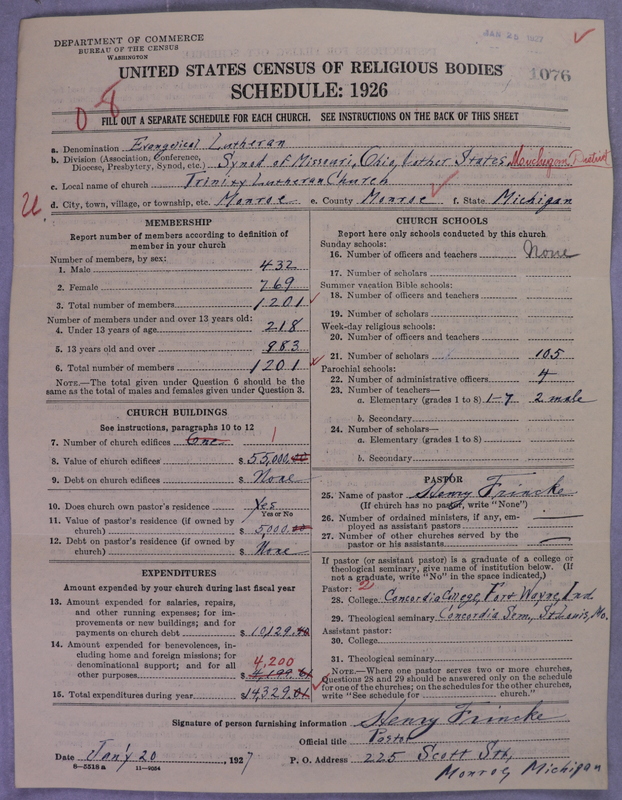 DEPARTMENT OF COMMERCE
BUREAU OF THE CENSUS
WASHINGTON
JAN 26 1927
UNITED STATES CENSUS OF RELIGIOUS BODIES
1076
SCHEDULE: 1926
FILL OUT A SEPARATE SCHEDULE FOR EACH CHURCH. SEE INSTRUCTIONS ON THE BACK OF THIS SHEET
a. Denomination Evangelical Lutheran
b. Division (Association, Conference, Diocese, Presbytery, Synod, etc.) Synod of Missouri, Ohio, & other States, District
c. Local name of church Trinity Lutheran Church
d. City, town, village, or township, etc. Monroe e. County Monroe f. State Michigan
MEMBERSHIP
Report number of members according to definition of
member in your church
Number of members, by sex:
1. Male 432
2. Female 769
3. Total number of members 1201
Number of members under and over 13 years old:
4. Under 13 years of age 218
5. 13 years old and over 983
6. Total number of members 1201
NOTE.—The total given under Question 6 should be
same as the total of males and females given under Question 3.
CHURCH BUILDINGS
See instructions, paragraphs 10 to 12
7. Number of church edifices One 1
8. Value of church edifices $ 55,000.00
9. Debt on church edifices $ None
10. Does church own pastor's residence Yes
Yes or No
11. Value of pastor's residence (if owned by
church) $ 5,000.00
12. Debt on pastor's residence (if owned by
church) $ None
EXPENDITURES
Amount expended by your church during last fiscal year
13. Amount expended for salaries, repairs,
and other running expenses; for im-
provements or new buildings; and for
payments on church debt $ 10,129.40
14. Amount expended for benevolences, in-
cluding home and foreign missions; for
denominational support; and for all
other purposes 4,200 $ 4,199.61
15. Total expenditures during year $ 14,329.01
CHURCH SCHOOLS
Report here only schools conducted by this church
Sunday schools:
16. Number of officers and teachers None
17. Number of scholars
Summer vacation Bible schools:
18. Number of officers and teachers
19. Number of scholars
Week-day religious schools:
20. Number of officers and teachers
21. Number of scholars 105
Parochial schools:
22. Number of administrative officers 4
23. Number of teachers—
a. Elementary (grades 1 to 8) 1-7 2 male
b. Secondary
24. Number of scholars—
a. Elementary (grades 1 to 8)
b. Secondary
PASTOR
25. Name of pastor Henry Frincke
(If church has no pastor, write "None")
26. Number of ordained ministers, if any, em-
ployed as assistant pastors —
27. Number of other churches served by the
pastor or his assistants —
If pastor (or assistant pastor) is a graduate of a college or
theological seminary, give name of institution below. (If
not a graduate, write "No" in the space indicated.)
Pastor: 2
28. College Concordia College, Fort Wayne, Ind
29. Theological seminary Concordia Sem., St. Louis, Mo.
Assistant pastor:
30. College
31. Theological seminary
NOTE.—Where one pastor serves two or more churches,
Questions 28 and 29 should be answered only on the schedule
for one of the churches; on the schedules for the other churches,
write "See schedule for church."
Signature of person furnishing information Henry Frincke
Official title Pastor
Date Jan'y 20, 1927 P. O. Address 225 Scott Str,
8—5518a 11—9034
Monroe, Michigan